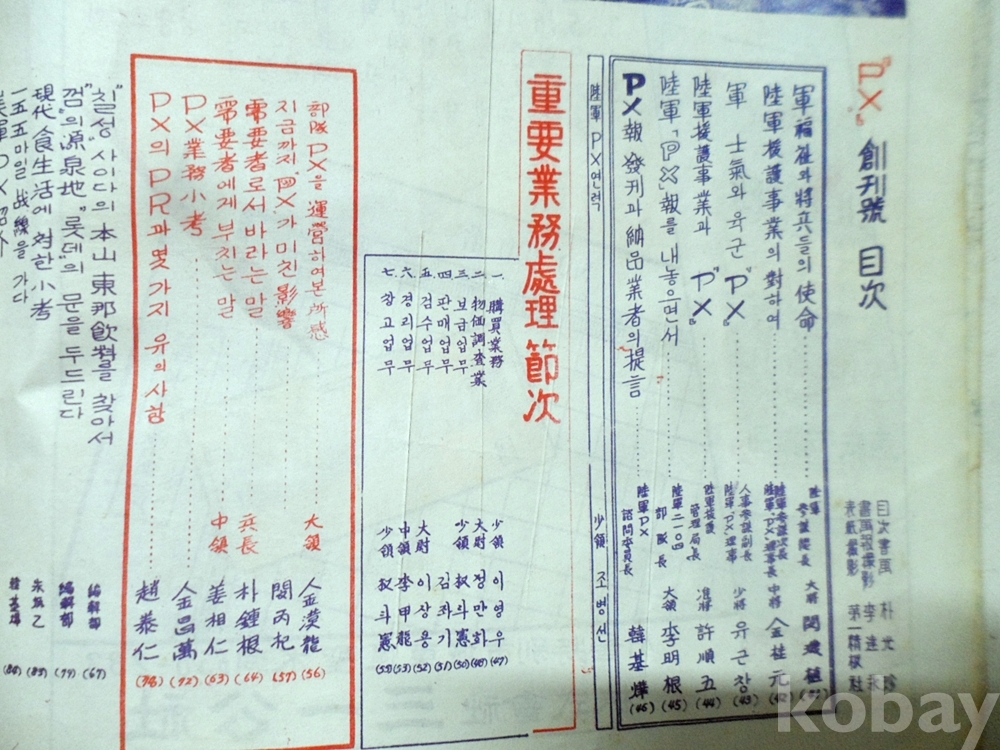 "PX" 創刊號 目次
目次書畵 朴光珍
書画及撮影 李逹永
表紙撮影 第一精版社
軍福祉와 將兵들의 使命 陸軍參謀總長 大將 閔機植 (41)
陸軍援護事業의 對하여 陸軍參謀次長 陸軍"PX"理事長 中將 金桂元 (42)
軍 士氣와 육군 "PX" 人事參謀副長 陸軍"PX"理事 少將 유근창 (43)
陸軍援護事業과 "PX" 陸軍援護管理局長 准將 許順五 (44)
陸軍「PX」報를 내놓으면서 陸軍二一０四部隊長 大領 李明根 (45)
PX報 發刊과 納品業者의 提言 陸軍PX諮問委員長 韓基燁 (46)
陸軍 PX연력 少領 조병선
重要業務處理節次
一. 購買業務 少領 이영우 (47)
二. 物価調査業 大尉 정만화 (48)
三. 보급업무 少領 权斗憲 (50)
四. 판매업무 김좌기 (51)
五. 검수업무 大尉 이상용 (52)
六. 경리업무 中領 李甲龍 (53)
七. 창고업무 少領 权斗憲 (55)
部隊 PX을 運營하여본 所感 大領 金漢龍 (56)
지금까지 "PX"가 미친 影響 閔丙杞 (57)
需要者로서 바라는 말 兵長 朴鍾根 (64)
需要者에게 부치는 말 中領 姜相仁 (63)
PX業務小考 金昌萬 (72)
PX의 PR과 몇가지 유의사항 趙泰仁 (78)
"칠성"사이다의 本山 東邦飮料를 찾아서 編輯部 (67)
껌"의 源泉地 "롯데"의 문을 두드린다 編輯部 (74)
現代食生活에 対한 小考
一五五마일 战線을 가다
美軍 PX 紹介
kobay